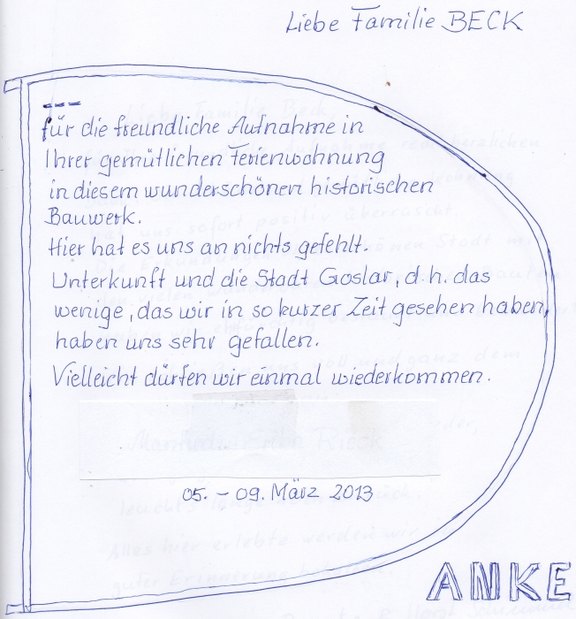 Liebe Familie BECK
---
für die freundliche Aufnahme in
Ihrer gemütlichen Ferienwohnung
in diesem wunderschönen historischen
Bauwerk.
Hier hat es uns an nichts gefehlt.
Unterkunft und die Stadt Goslar, d.h. das
wenige, das wir in so kurzer Zeit gesehen haben,
haben uns sehr gefallen.
Vielleicht dürfen wir einmal wiederkommen.
05. – 09. März 2013
ANKE